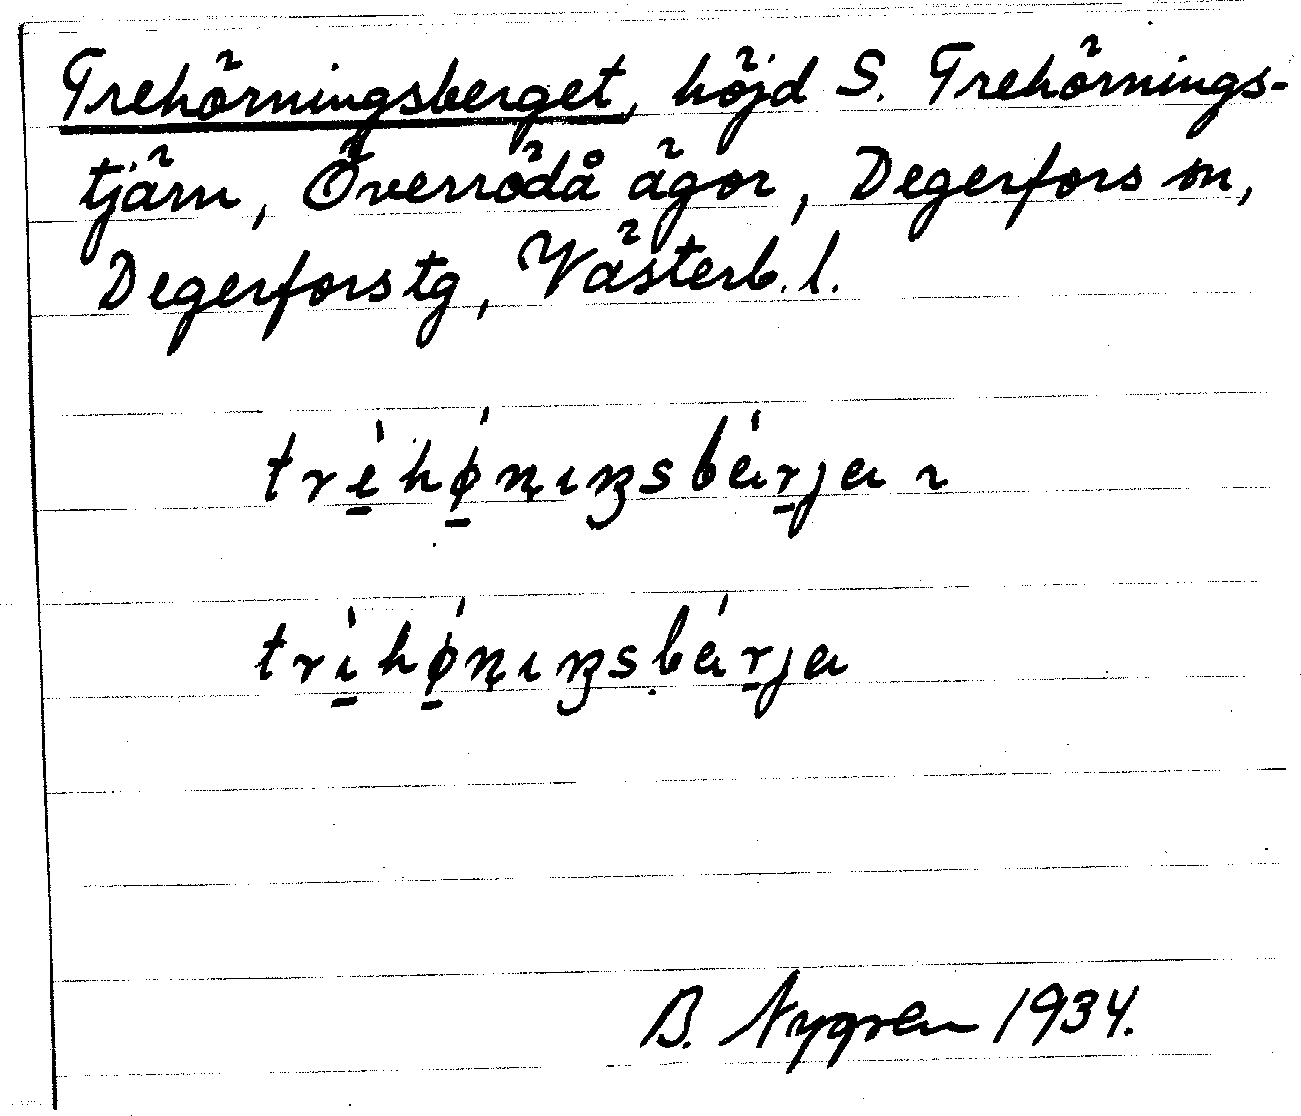 Trehörningsberget, höjd S. Trehörnings-
tjärn, Överrödå ägor, Degerfors sn,
Degerfors tg, Västerb. l.
trè̱hǿ̱ṇıŋsbáṟja ɿ
trı̱̀hǿ̱ṇıŋsbáṟja
B. Nygren 1934.